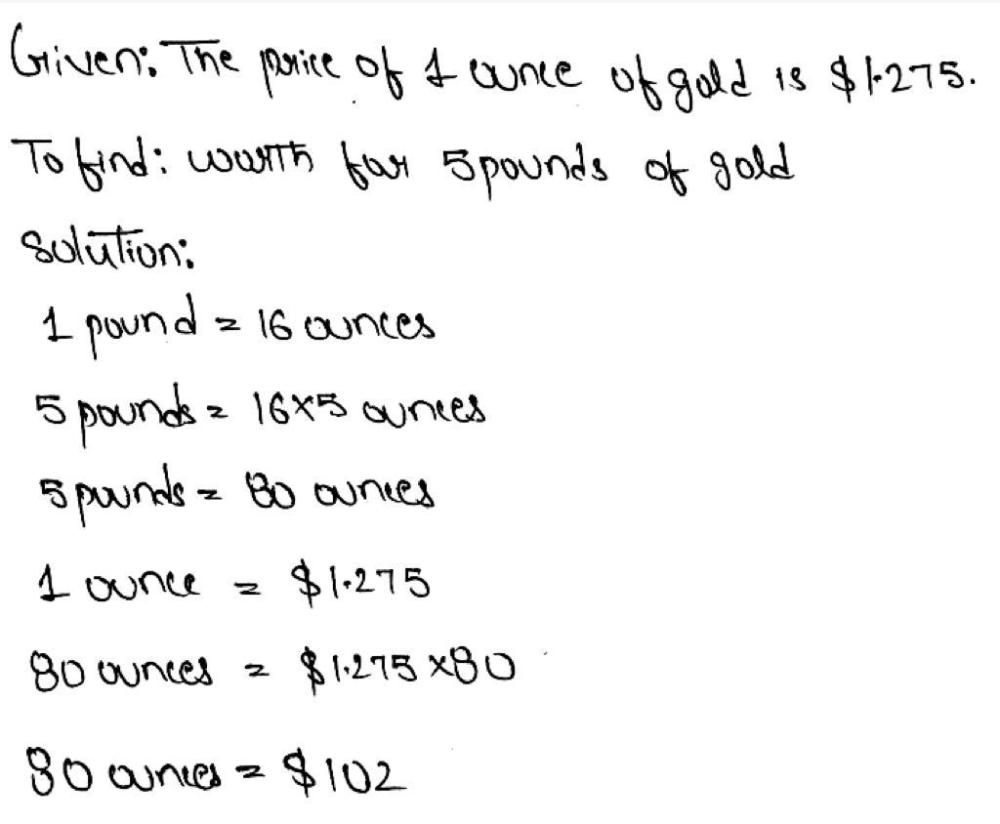 Given: The price of 1 ounce of gold is $1.275.
To find: worth for 5 pounds of gold
Solution:
1 pound = 16 ounces
5 pounds = 16×5 ounces
5 pounds = 80 ounces
1 ounce = $1.275
80 ounces = $1.275 ×80
80 ounces = $102